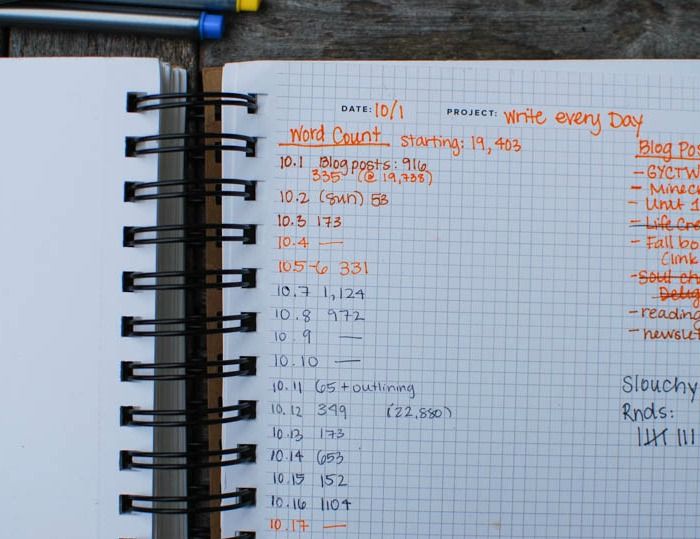 DATE: 10/1 PROJECT: Write every Day
Word Count starting: 19,403
10.1 Blog posts: 916
335 (@ 19,738)
10.2 (sun) 53
10.3 173
10.4 —
10.5-6 331
10.7 1,124
10.8 972
10.9 —
10.10 —
10.11 65 + outlining
10.12 349 (22,880)
10.13 173
10.14 653
10.15 152
10.16 1104
10.17 —
Blog Pos
- GYCTW
- Minec
- Unit 1
- Life Cre
- Fall bo
Clink
- Soul ch
- reading
- newslet
Slouchy
Rnds: